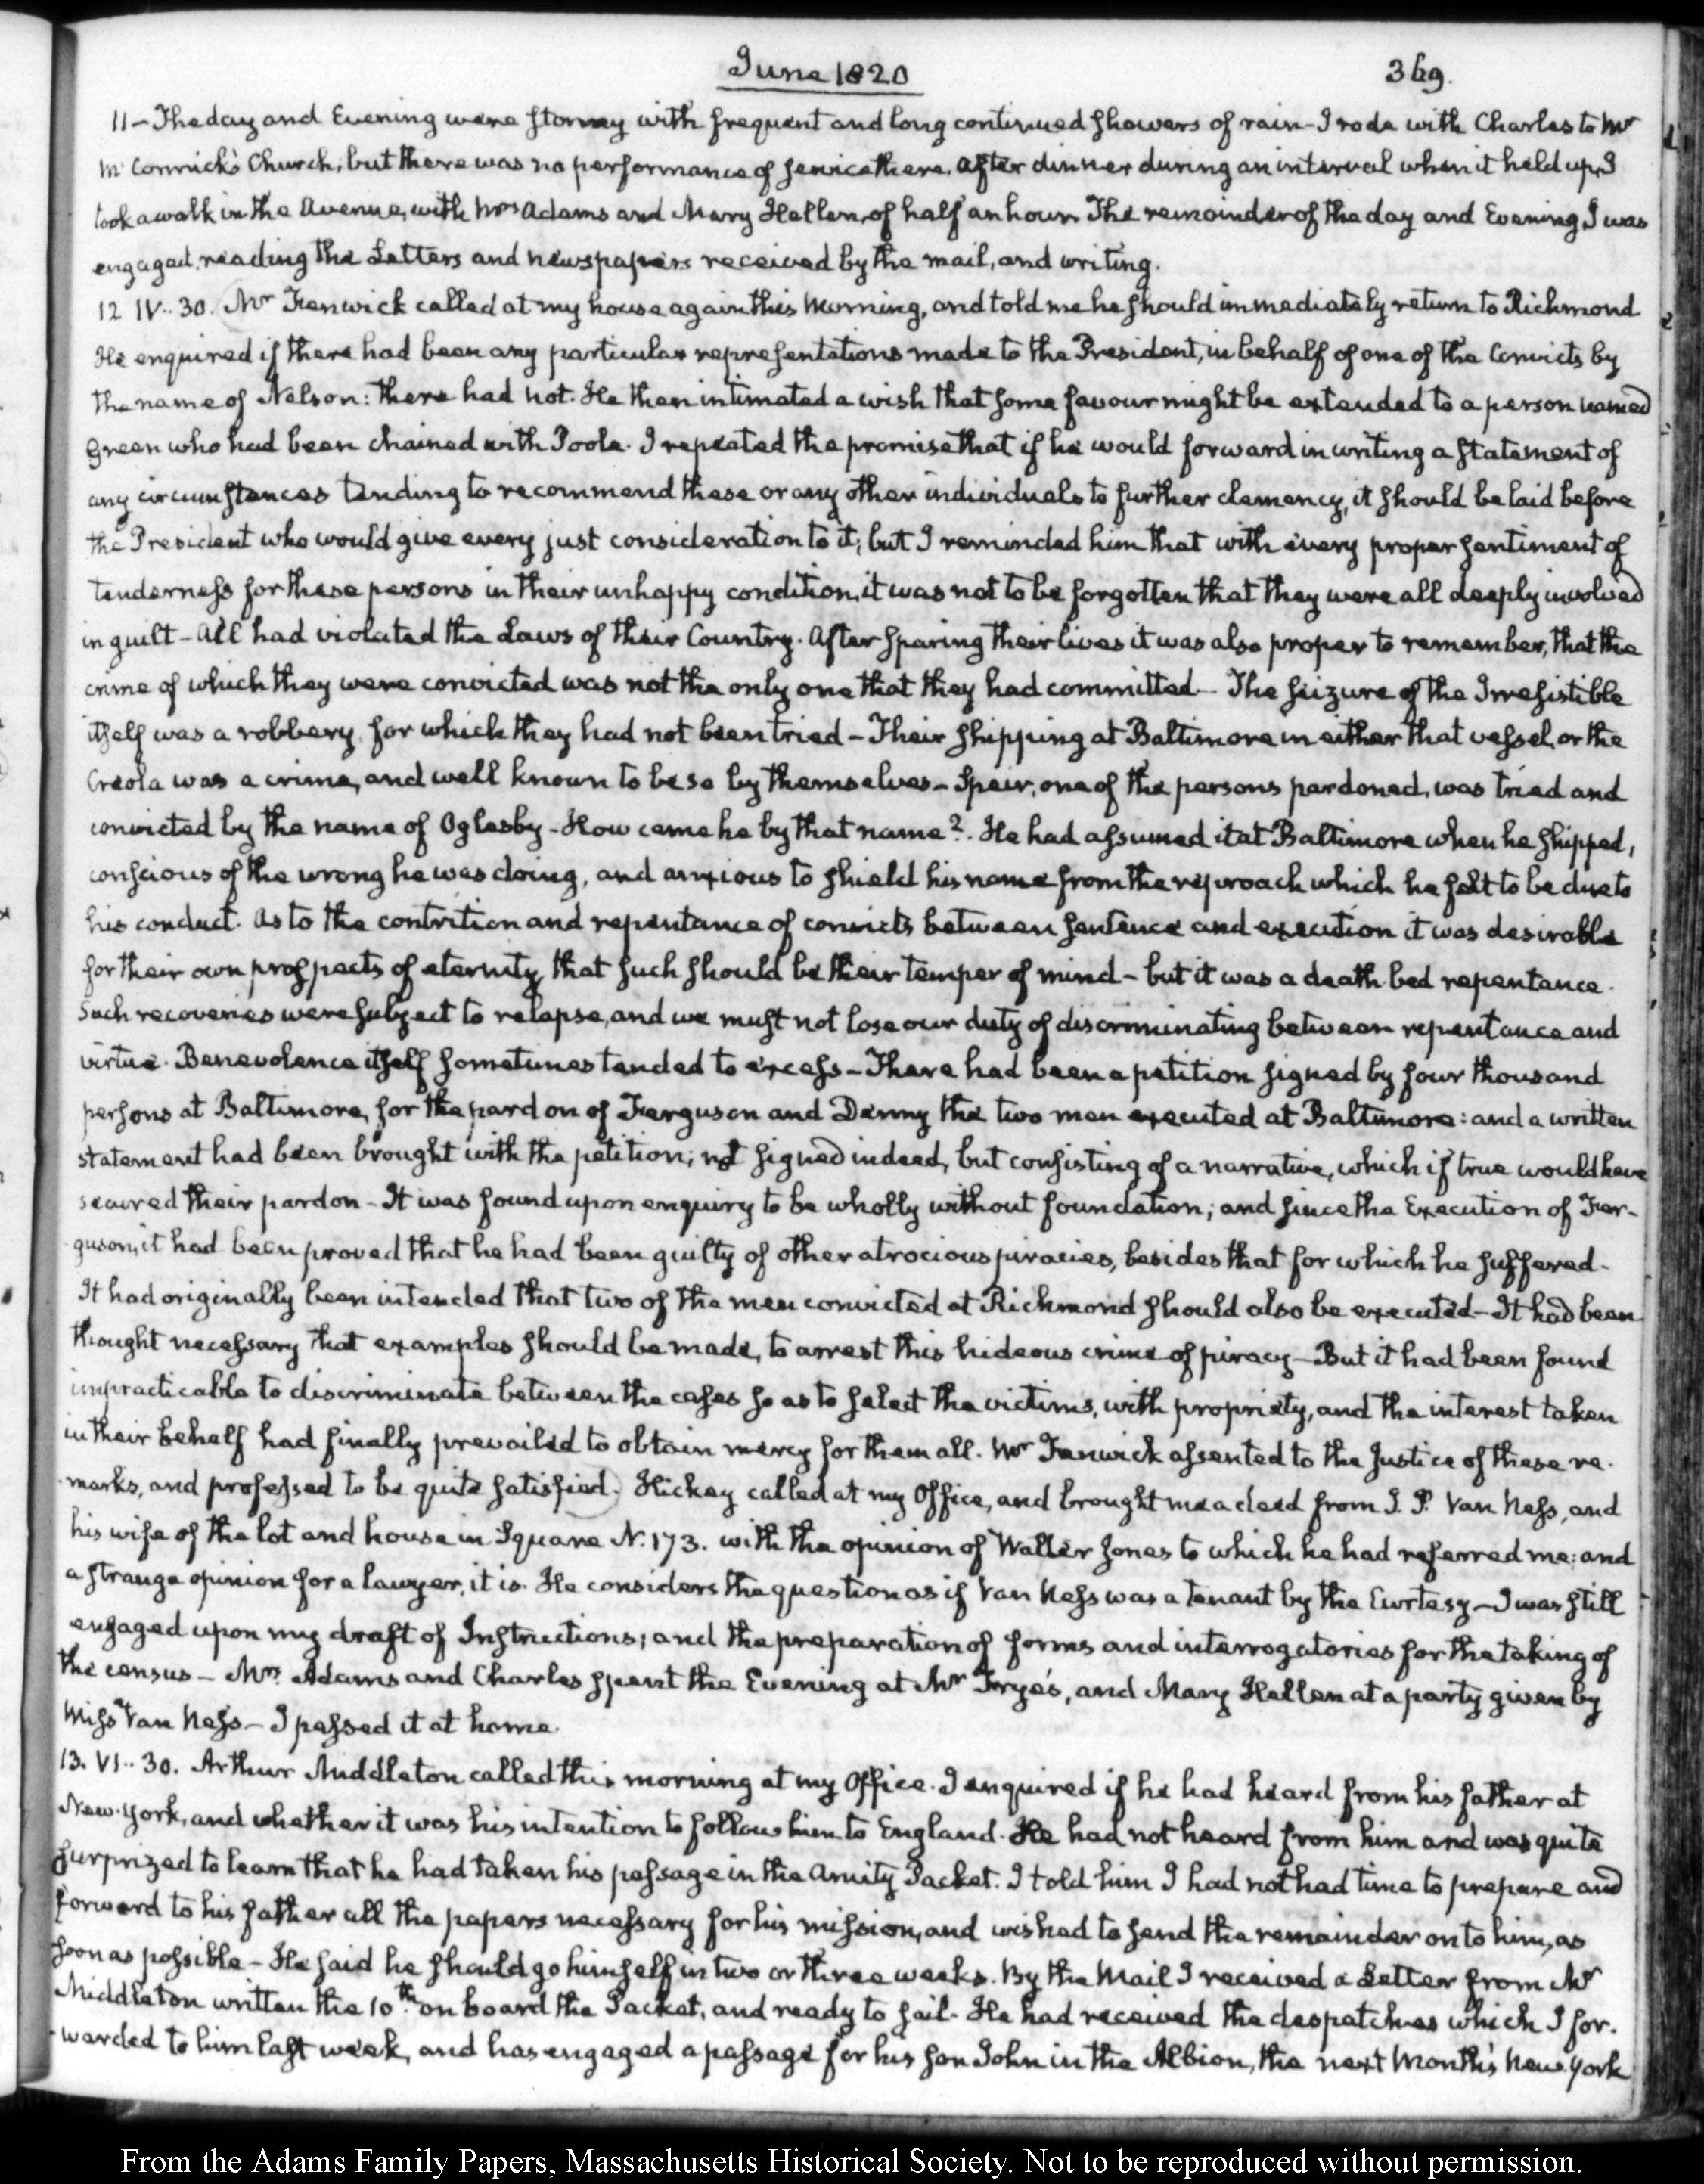 June 1820
369.
11 – The day and Evening were stormy with frequent and long continued showers of rain – I rode with Charles to Mr
McCormick's Church; but there was no performance of service there. After dinner during an interval when it held up, I
took a walk in the Avenue, with Mrs Adams and Mary Hellen, of half an hour. The remainder of the day and Evening, I was
engaged, reading the Letters and newspapers received by the mail, and writing.
12 IV.. 30. Mr Fenwick called at my house again this Morning, and told me he should immediately return to Richmond
He enquired if there had been any particular representations made to the President, in behalf of one of the Convicts by
the name of Nelson: there had not. He then intimated a wish that some favour might be extended to a person named
Green who had been chained with Poole. I repeated the promise that if he would forward in writing a statement of
any circumstances tending to recommend these or any other individuals to further clemency, it should be laid before
the President who would give every just consideration to it; but I reminded him that with every proper sentiment of
tenderness for these persons in their unhappy condition, it was not to be forgotten that they were all deeply involved
in guilt – All had violated the Laws of their Country. After sparing their lives it was also proper to remember, that the
crime of which they were convicted was not the only one that they had committed – The seizure of the Irresistible
itself was a robbery, for which they had not been tried – Their shipping at Baltimore in either that vessel, or the
Creola was a crime, and well known to be so by themselves – Speir, one of the persons pardoned, was tried and
convicted by the name of Oglesby – How came he by that name? He had assumed it at Baltimore when he shipped,
conscious of the wrong he was doing, and anxious to shield his name from the reproach which he felt to be due to
his conduct. As to the contrition and repentance of convicts between sentence and execution it was desirable
for their own prospects of eternity, that such should be their temper of mind – but it was a death bed repentance.
Such recoveries were subject to relapse, and we must not lose our duty of discriminating between repentance and
virtue. Benevolence itself sometimes tended to excess – There had been a petition signed by four thousand
persons at Baltimore, for the pardon of Ferguson and Denny the two men executed at Baltimore: and a written
statement had been brought with the petition; not signed indeed, but consisting of a narrative, which if true would have
secured their pardon – It was found upon enquiry to be wholly without foundation; and since the Execution of Fer-
guson, it had been proved that he had been guilty of other atrocious piracies, besides that for which he suffered –
It had originally been intended that two of the men convicted at Richmond should also be executed – It had been
thought necessary that examples should be made, to arrest this hideous crime of piracy – But it had been found
impracticable to discriminate between the cases so as to select the victims, with propriety, and the interest taken
in their behalf had finally prevailed to obtain mercy for them all. Mr Fenwick assented to the Justice of these re-
marks, and professed to be quite satisfied. Hickey called at my Office, and brought me a deed from J. P. Van Ness, and
his wife of the lot and house in Square N. 173. with the opinion of Walter Jones to which he had referred me: and
a strange opinion for a lawyer, it is. He considers the question as if Van Ness was a tenant by the Curtesy – I was still
engaged upon my draft of Instructions; and the preparation of forms and interrogatories for the taking of
the census – Mrs. Adams and Charles spent the Evening at Mr Frye's, and Mary Hellen at a party given by
Miss Van Ness – I passed it at home.
13. VI.. 30. Arthur Middleton called this morning at my Office. I enquired if he had heard from his father at
New-York, and whether it was his intention to follow him to England. He had not heard from him and was quite
surprized to learn that he had taken his passage in the Amity Packet. I told him I had not had time to prepare and
forward to his father all the papers necessary for his mission, and wished to send the remainder on to him, as
soon as possible – He said he should go himself in two or three weeks. By the Mail I received a Letter from Mr
Middleton written the 10th on board the Packet, and ready to sail. He had received the despatches which I for-
warded to him last week, and has engaged a passage for his son John in the Albion, the next Month's New-York
From the Adams Family Papers, Massachusetts Historical Society. Not to be reproduced without permission.